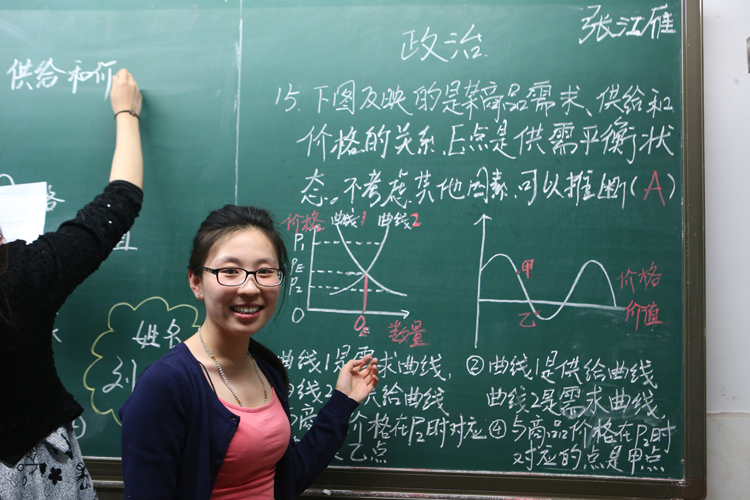 供给和价
政治
张江雁
15.下图反映的是某商品需求、供给和
价格的关系,E点是供需平衡状
态。不考虑其他因素,可以推断(A)
价格 曲线1 曲线2
P₁
PE
P₂
O
QE
数量
甲
乙
价格
价值
姓名
刘
格
值
曲线1是需求曲线,
线2 供给曲线
②曲线1是供给曲线
曲线2是需求曲线
商 价格在P2时对应
乙点
④与商品价格在P2时
对应的点是甲点